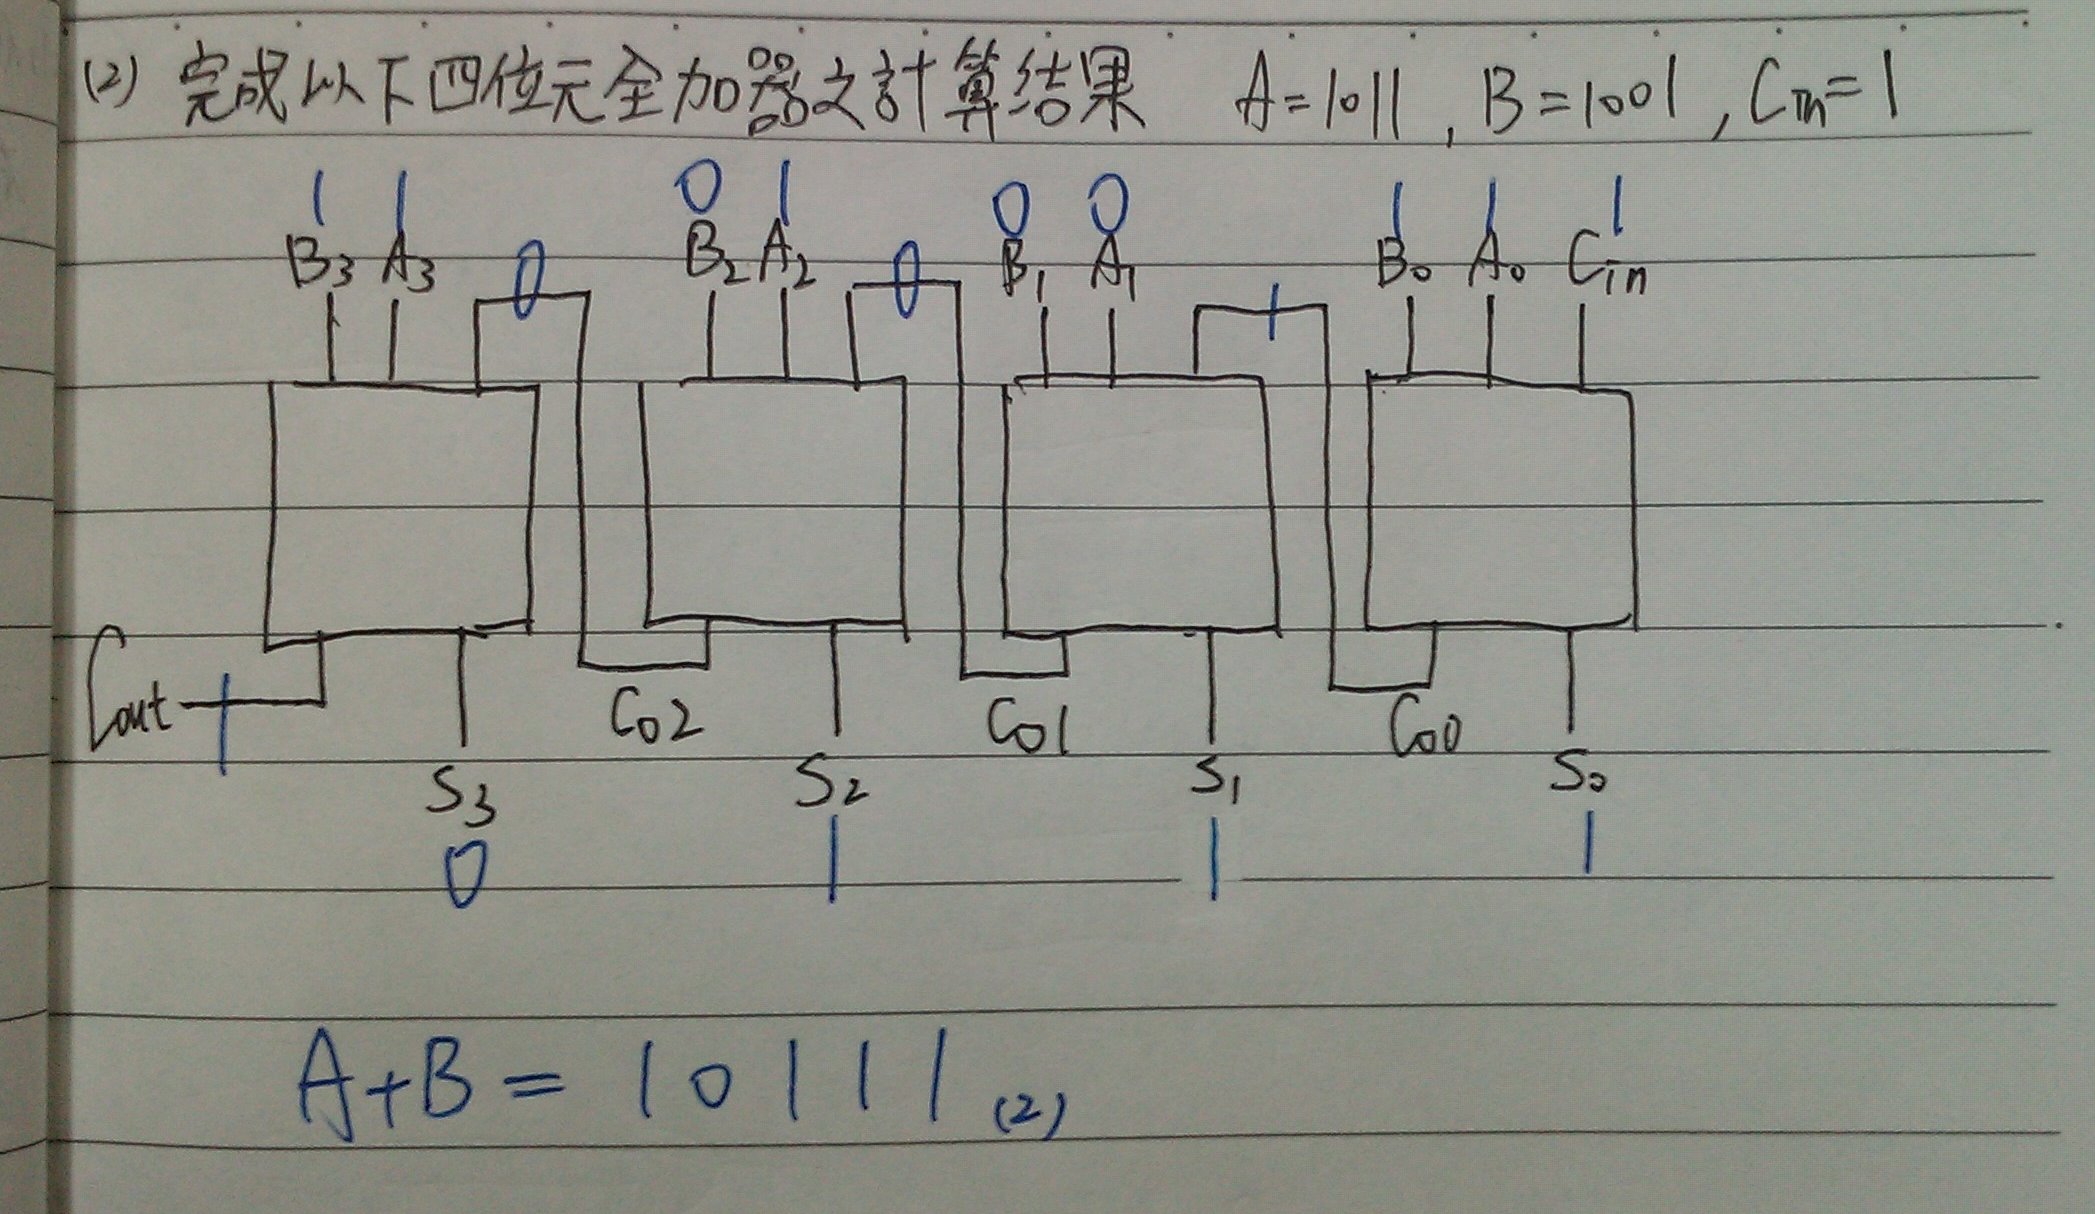 (2) 完成以下四位元全加器之計算結果 A=1011, B=1001, Cin=1
1 1 0 1 0 0 1 1 1
B3 A3 B2 A2 B1 A1 B0 A0 Cin
0 0 1
Cout 1 Co2 Co1 Co0
S3 S2 S1 S0
0 1 1 1
A+B = 10111(2)